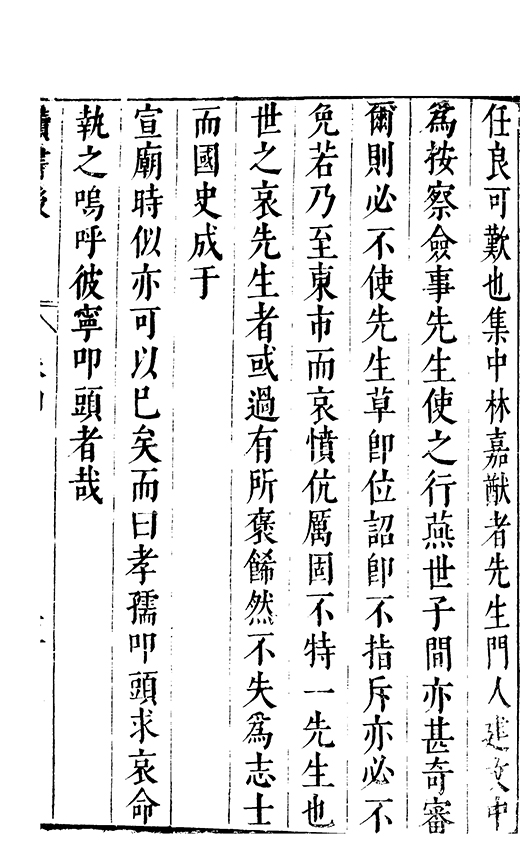 任良可歎也集中林嘉猷者先生門人建文中
爲按察僉事先生使之行燕世子間亦甚奇審
爾則必不使先生草卽位詔卽不指斥亦必不
免若乃至東市而哀憤伉厲固不特一先生也
世之哀先生者或過有所褒餙然不失爲志士
而國史成于
宣廟時似亦可以已矣而曰孝孺叩頭求哀命
執之嗚呼彼寧叩頭者哉
讀書後